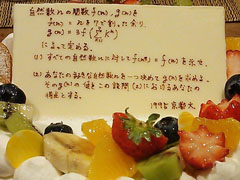 自然数nの関数f(n),g(n)を
f(n)=nを7で割った余り,
g(n)=3f(Σ_{k=1}^{7}k^n)
によって定める.
(1) すべての自然数nに対してf(n^7)=f(n)を示せ.
(2) あなたの好きな自然数nを一つ決めてg(n)を求めよ.
そのg(n)の値をこの設問(2)におけるあなたの
得点とする.
1995 京都大